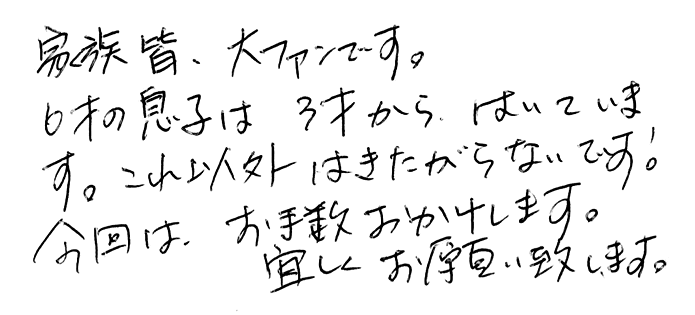 家族皆、大ファンです。
6才の息子は 3才から、はいていま
す。これ以外はきたがらないです!
今回は、お手数おかけします。
宜しくお願い致します。